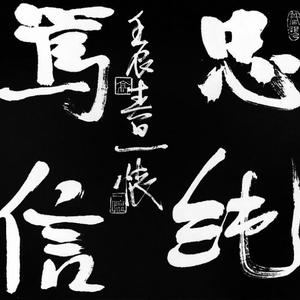 忠纯
笃信
壬辰春日一怀